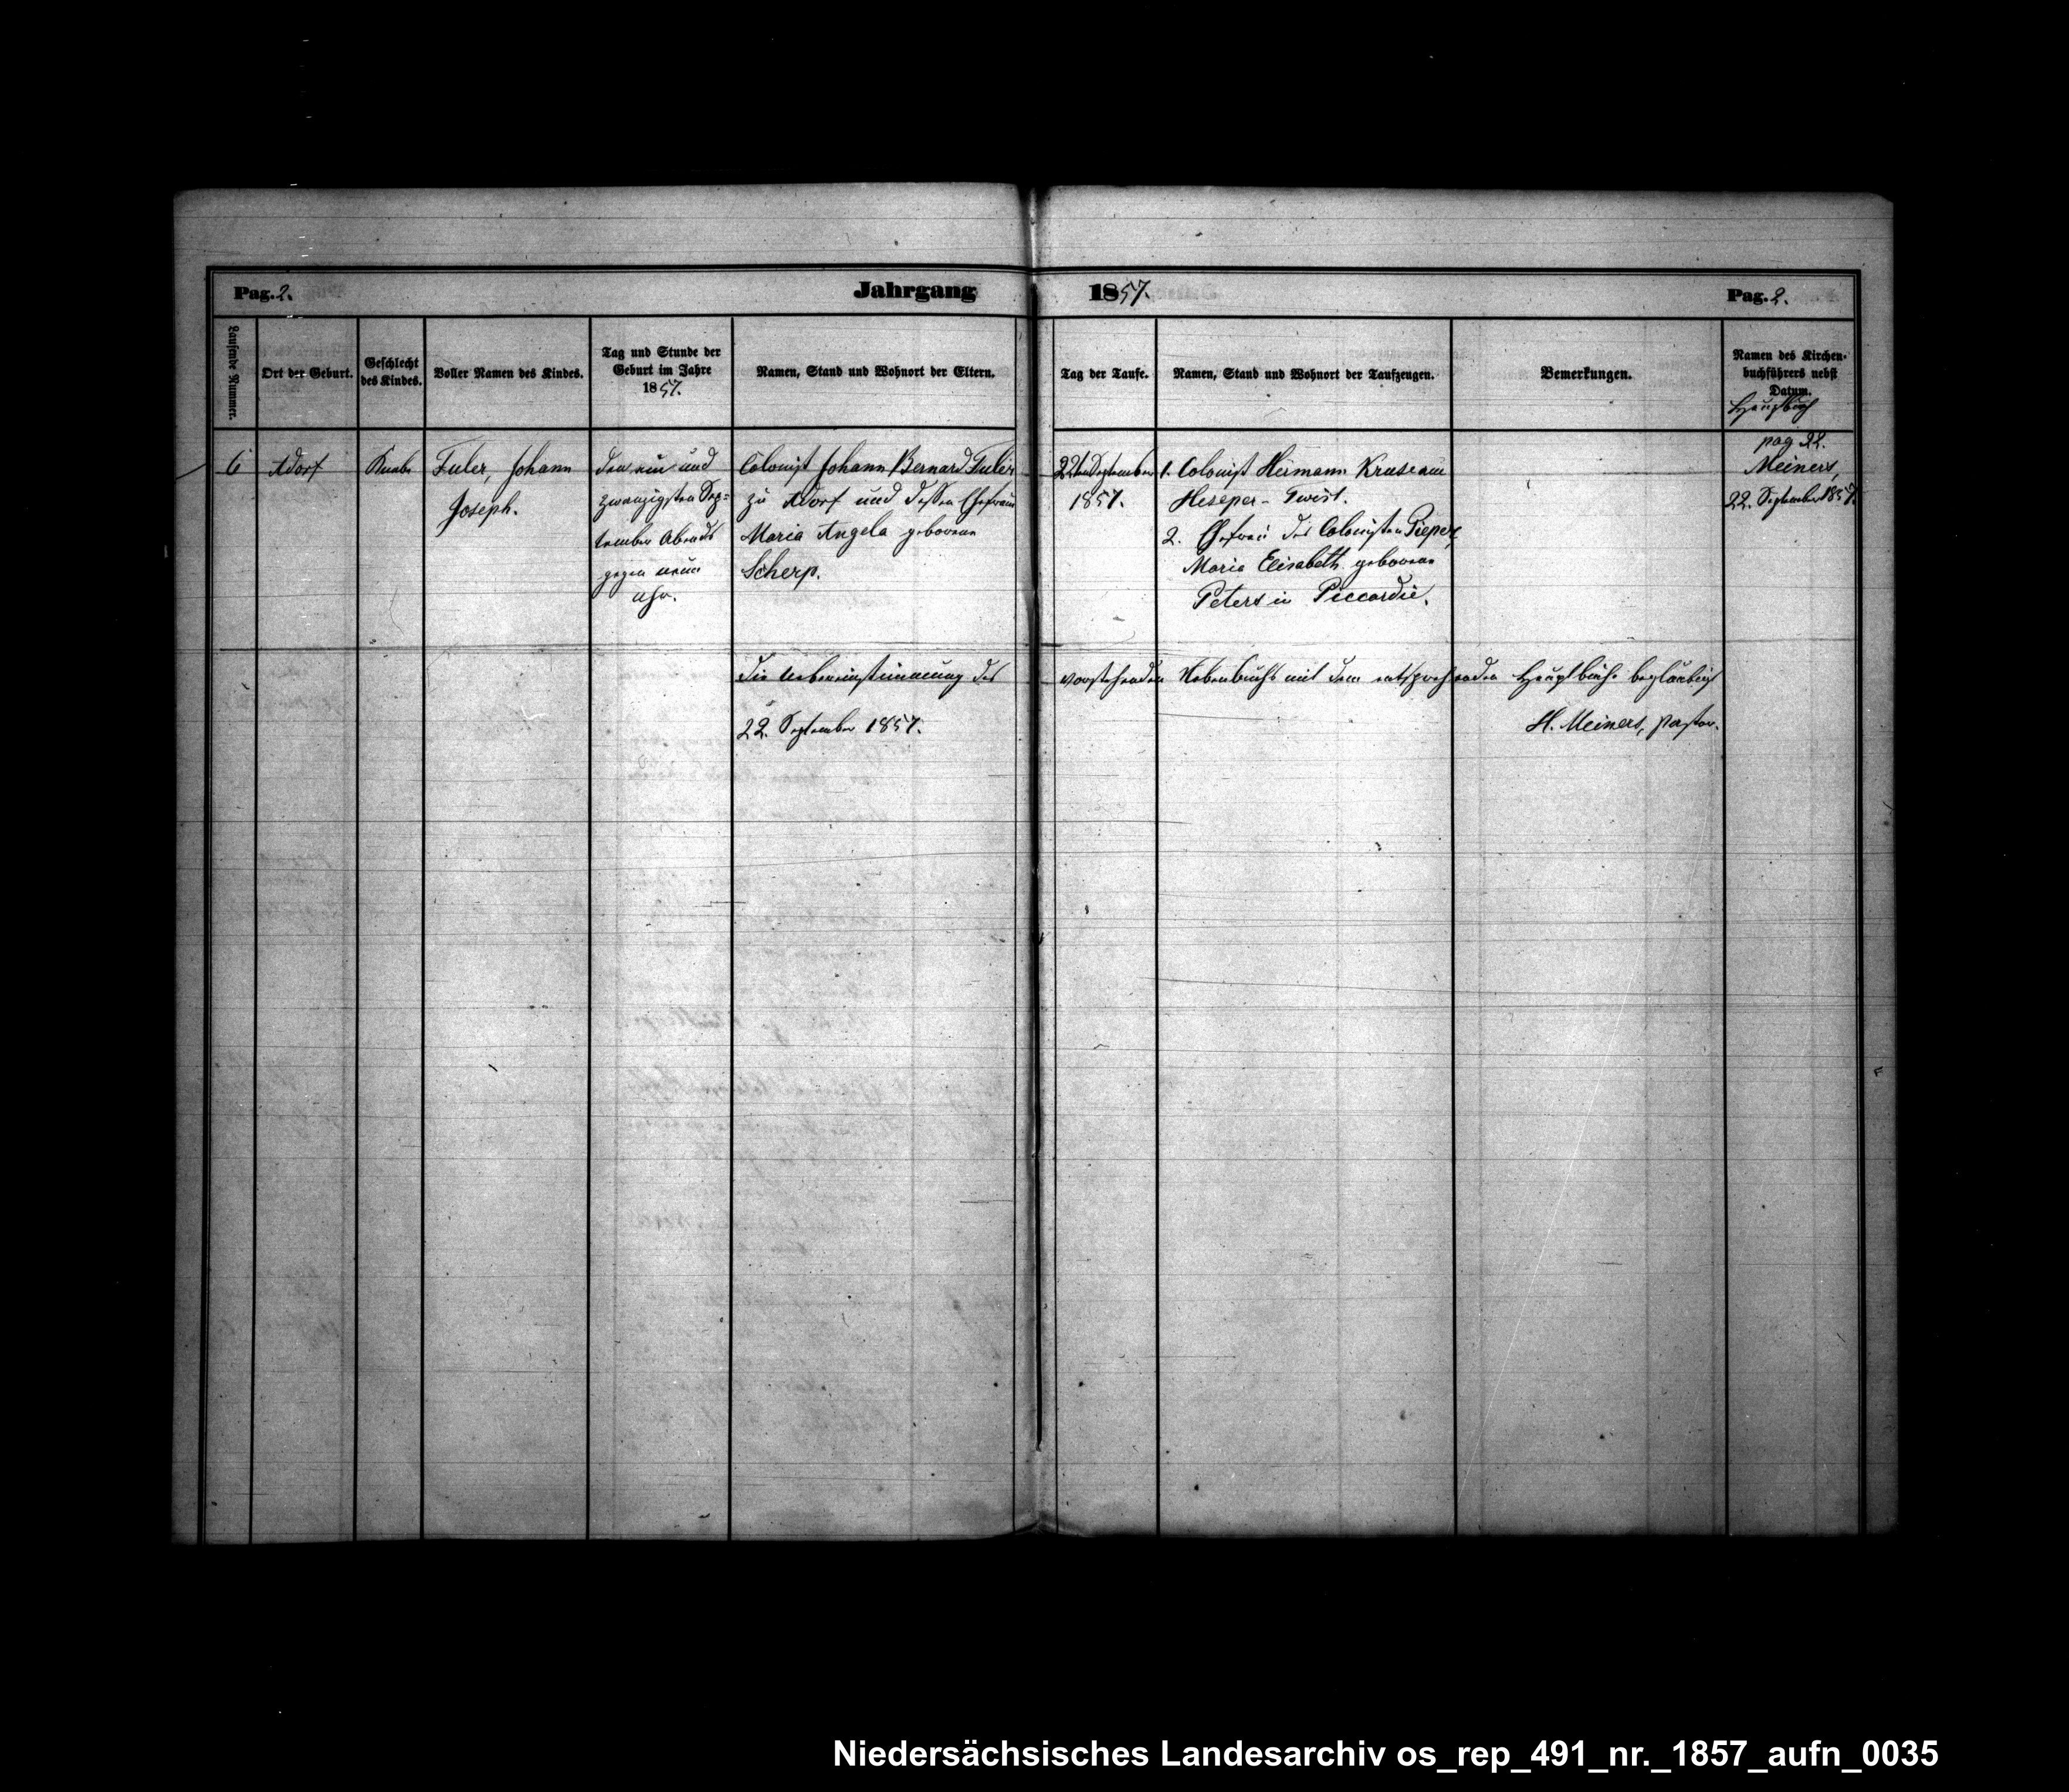 Pag. 2.
Jahrgang 1857.
Pag. 2.
Laufende Nummer.
Ort der Geburt.
Geschlecht
des Kindes.
Voller Namen des Kindes.
Tag und Stunde der
Geburt im Jahre
1857.
Namen, Stand und Wohnort der Eltern.
Tag der Taufe.
Namen, Stand und Wohnort der Taufzeugen.
Bemerkungen.
Namen des Kirchen-
buchführers nebst
Datum.
Hauptbuch
pag 22.
6
Adorf
Knabe
Tuler, Johann
Joseph.
den ein und
zwanzigsten Sep=
tember Abends
gegen neun
Uhr.
Colonist Johann Bernard Tuler
zu Adorf und dessen Ehefrau
Maria Angela geborene
Scherp.
22ten September
1857.
1. Colonist Hermann Kruse am
Heseper-Twist.
2. Ehefrau des Colonisten Pieper,
Maria Elisabeth geborene
Peters in Piccardie.
Meiners,
22. September 1857.
Die Uebereinstimmung des vorstehenden Nebenbuchs mit dem entsprechenden Hauptbuche beglaubigt
22. September 1857.
H. Meiners, Pastor.
Niedersächsisches Landesarchiv os_rep_491_nr._1857_aufn_0035